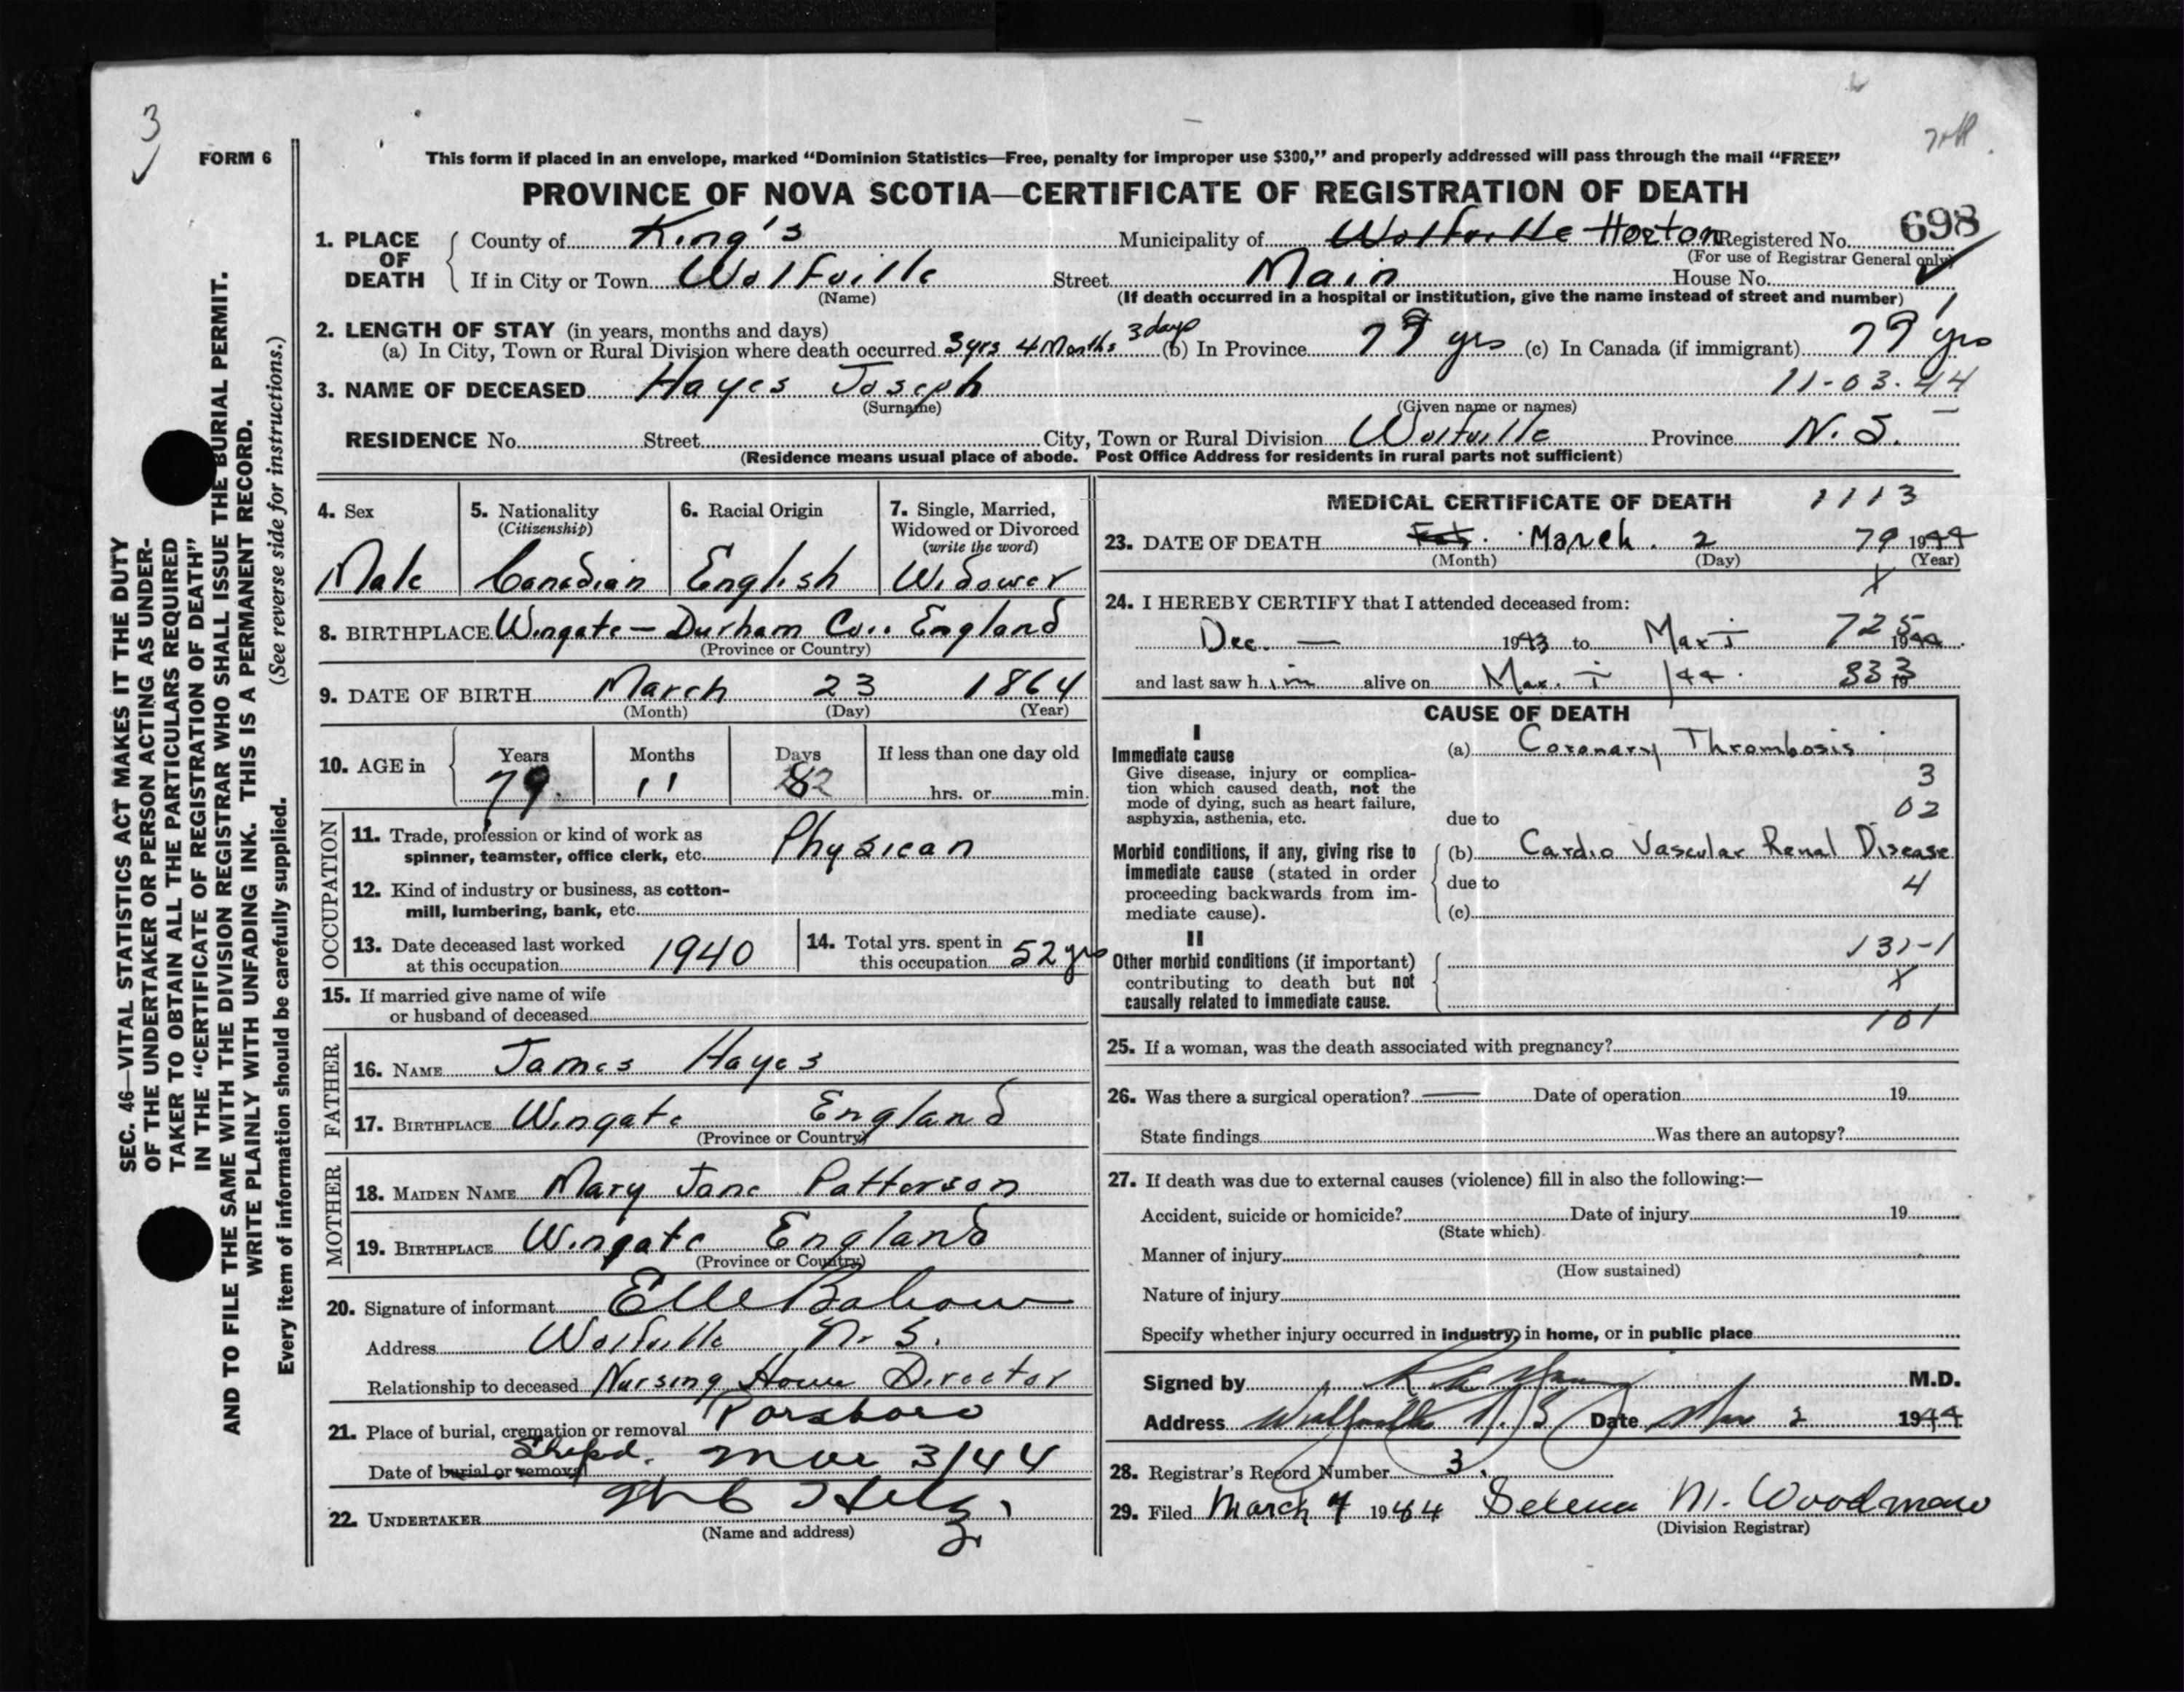 3
FORM 6
This form if placed in an envelope, marked "Dominion Statistics—Free, penalty for improper use $300," and properly addressed will pass through the mail "FREE"
PROVINCE OF NOVA SCOTIA—CERTIFICATE OF REGISTRATION OF DEATH
698
1. PLACE OF DEATH
County of King's Municipality of Wolfville Horton Registered No.
(For use of Registrar General only)
If in City or Town Wolfville Street Main House No.
(Name) (If death occurred in a hospital or institution, give the name instead of street and number)
2. LENGTH OF STAY (in years, months and days)
(a) In City, Town or Rural Division where death occurred 3 yrs 4 Months 3 days (b) In Province 79 yrs (c) In Canada (if immigrant) 79 yrs
3. NAME OF DECEASED Hayes Joseph 11-03-44
(Surname) (Given name or names)
RESIDENCE No. Street City, Town or Rural Division Wolfville Province N. S.
(Residence means usual place of abode. Post Office Address for residents in rural parts not sufficient)
4. Sex
Male
5. Nationality
(Citizenship)
Canadian
6. Racial Origin
English
7. Single, Married, Widowed or Divorced
(write the word)
Widower
8. BIRTHPLACE Wingate — Durham Co., England
(Province or Country)
9. DATE OF BIRTH March 23 1864
(Month) (Day) (Year)
10. AGE in
Years Months Days If less than one day old
79 11 hrs. or min.
OCCUPATION
11. Trade, profession or kind of work as
spinner, teamster, office clerk, etc. Physican
12. Kind of industry or business, as cotton-
mill, lumbering, bank, etc.
13. Date deceased last worked
at this occupation 1940
14. Total yrs. spent in
this occupation 52 yrs
15. If married give name of wife
or husband of deceased
FATHER
16. NAME James Hayes
17. BIRTHPLACE Wingate England
(Province or Country)
MOTHER
18. MAIDEN NAME Mary Jane Patterson
19. BIRTHPLACE Wingate England
(Province or Country)
20. Signature of informant
Address Wolfville N. S.
Relationship to deceased Nursing Home Director
21. Place of burial, cremation or removal Parsboro
Date of burial or removal Shipd. Mar 3/44
22. UNDERTAKER
(Name and address)
MEDICAL CERTIFICATE OF DEATH 1113
23. DATE OF DEATH Feb. March. 2 79 1944
(Month) (Day) (Year)
X
24. I HEREBY CERTIFY that I attended deceased from:
Dec. — 1943 to Mar 1 725 1944
and last saw him alive on Mar. 1 /44. 833 19
CAUSE OF DEATH
I
Immediate cause
Give disease, injury or complica-
tion which caused death, not the
mode of dying, such as heart failure,
asphyxia, asthenia, etc.
(a) Coronary Thrombosis
3
02
due to
Morbid conditions, if any, giving rise to
immediate cause (stated in order
proceeding backwards from im-
mediate cause).
(b) Cardio Vascular Renal Disease
due to 4
(c)
II
Other morbid conditions (if important)
contributing to death but not
causally related to immediate cause.
131-1
X
101
25. If a woman, was the death associated with pregnancy?
26. Was there a surgical operation? — Date of operation 19
State findings Was there an autopsy?
27. If death was due to external causes (violence) fill in also the following:—
Accident, suicide or homicide? Date of injury 19
(State which)
Manner of injury
(How sustained)
Nature of injury
Specify whether injury occurred in industry, in home, or in public place
Signed by M.D.
Address Wolfville N. S Date Mar 2 1944
28. Registrar's Record Number 3.
29. Filed March 4 1944 Selena M. Woodman
(Division Registrar)
SEC. 46—VITAL STATISTICS ACT MAKES IT THE DUTY
OF THE UNDERTAKER OR PERSON ACTING AS UNDER-
TAKER TO OBTAIN ALL THE PARTICULARS REQUIRED
IN THE "CERTIFICATE OF REGISTRATION OF DEATH"
AND TO FILE THE SAME WITH THE DIVISION REGISTRAR WHO SHALL ISSUE THE BURIAL PERMIT.
WRITE PLAINLY WITH UNFADING INK. THIS IS A PERMANENT RECORD.
Every item of information should be carefully supplied. (See reverse side for instructions.)